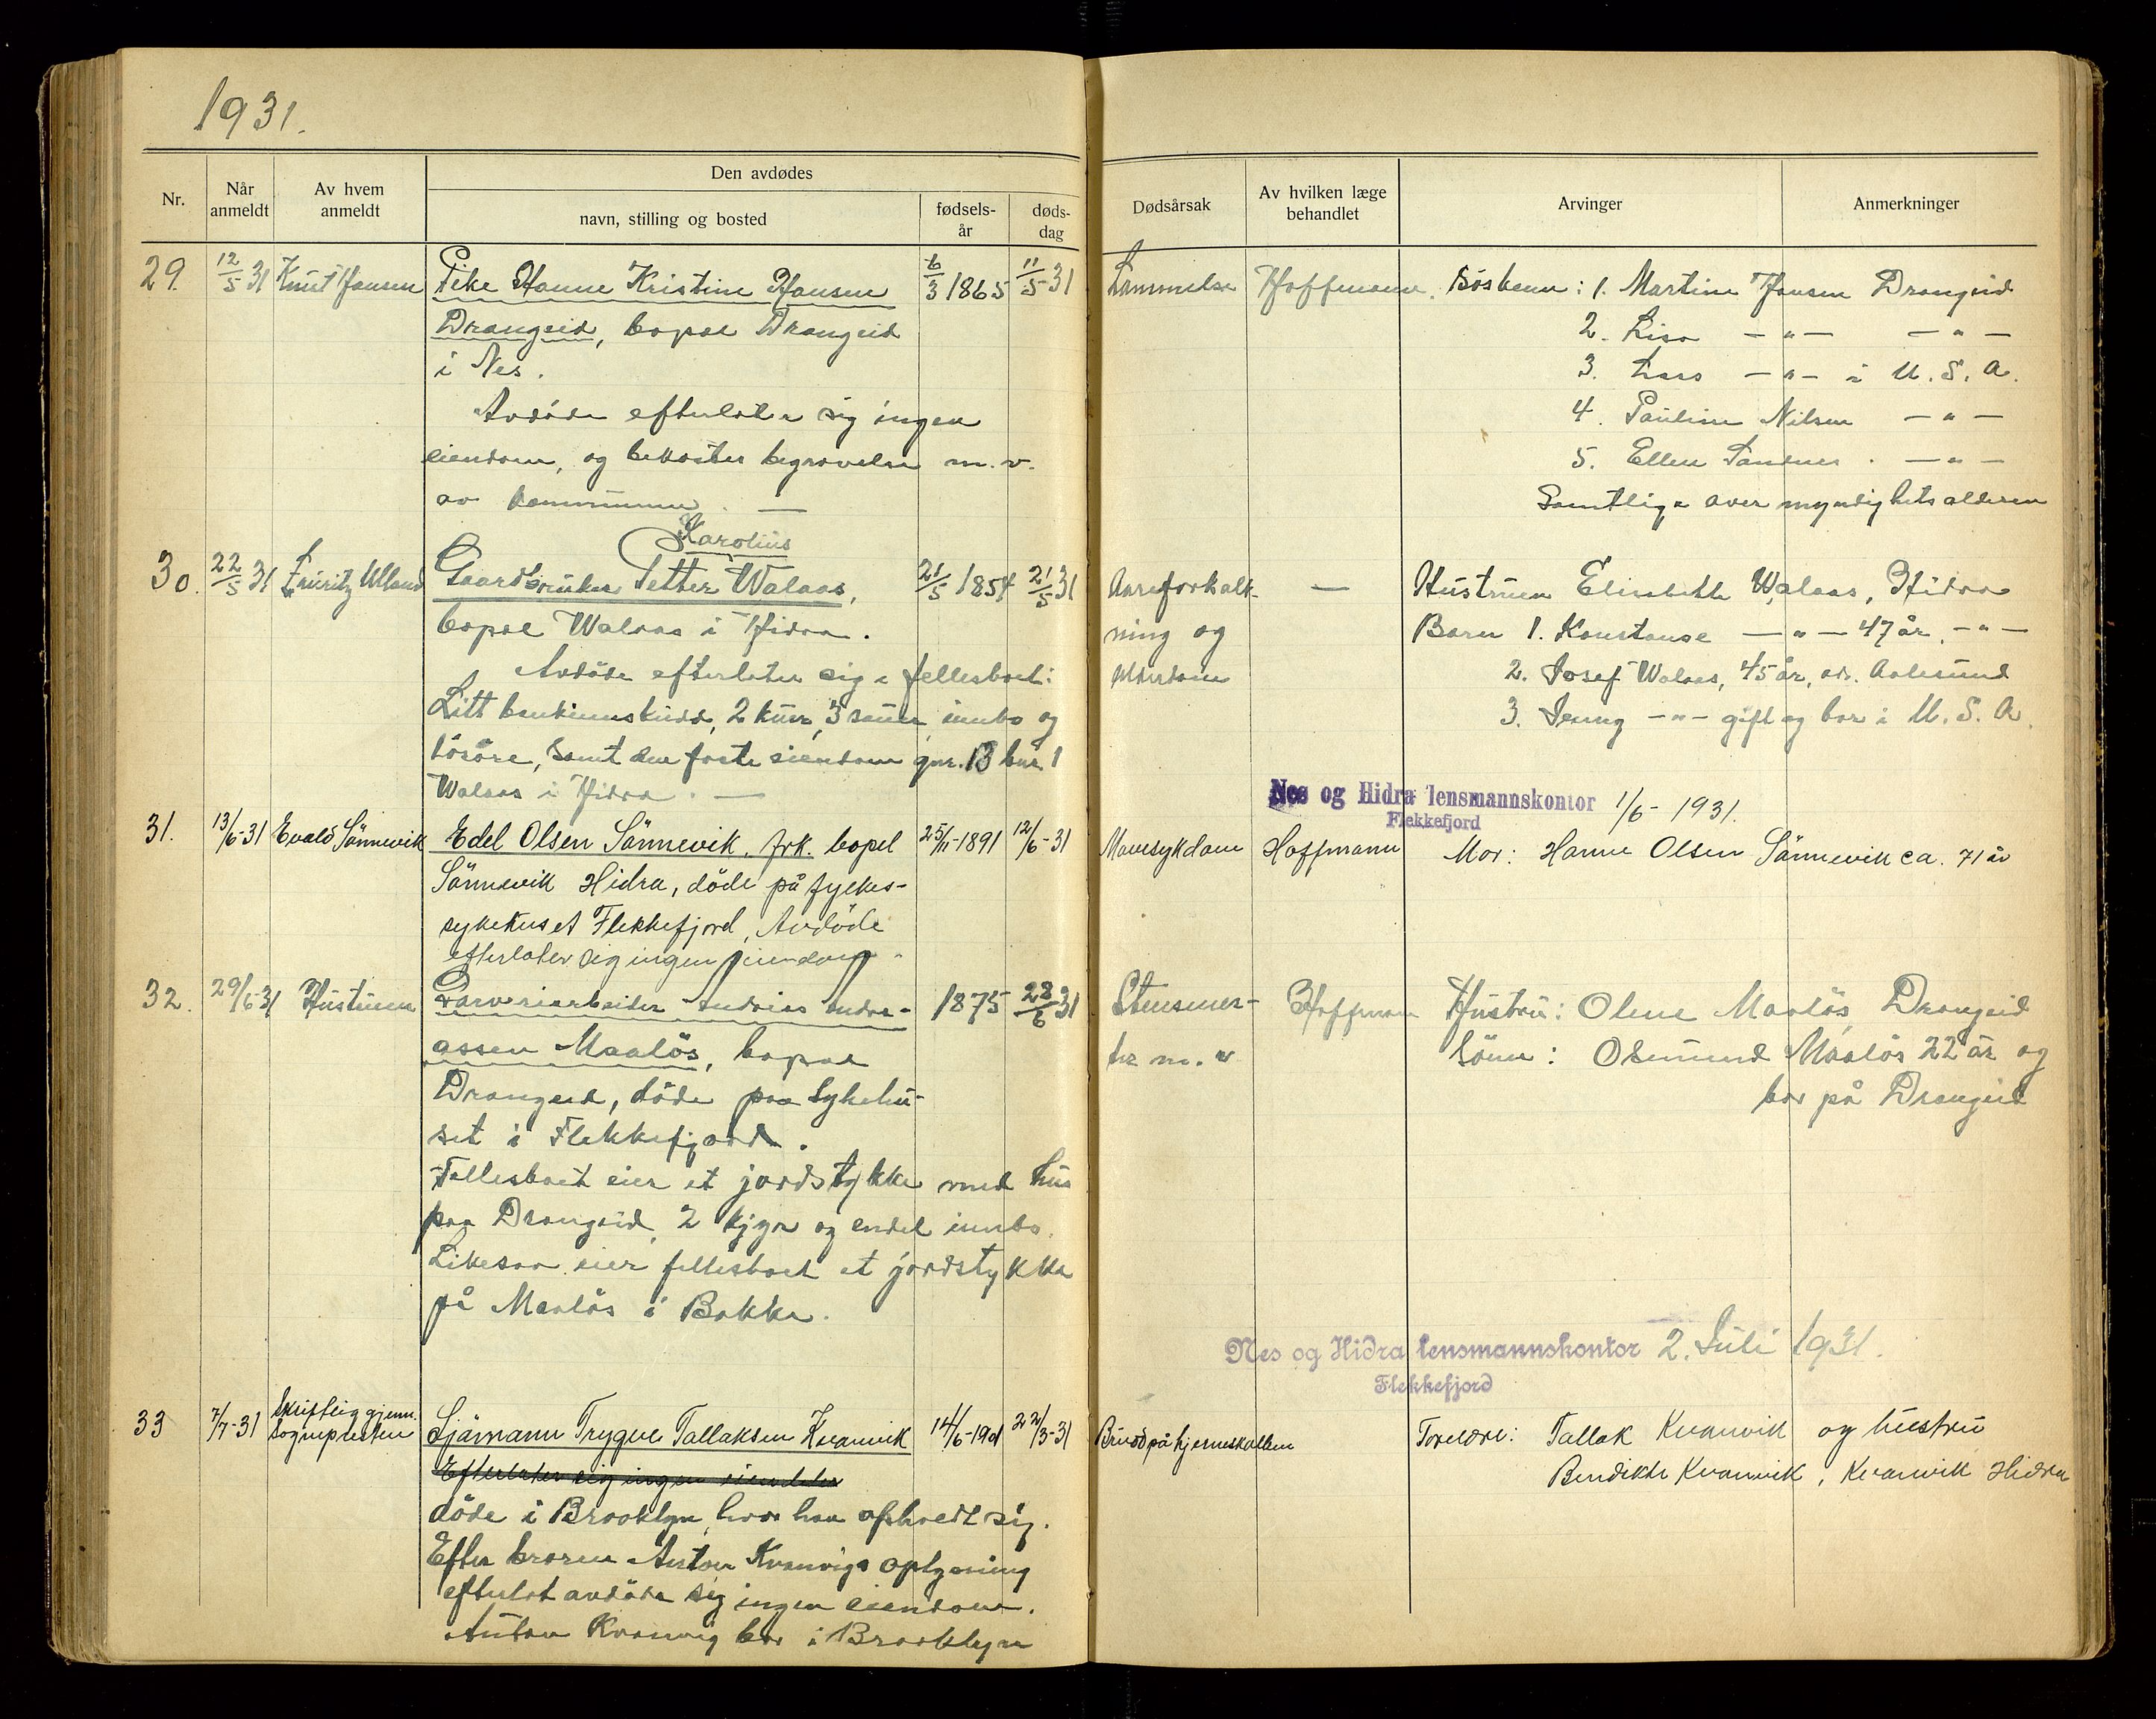 1931.
Nr.
Når anmeldt
Av hvem anmeldt
Den avdødes
navn, stilling og bosted
fødsels-
år
døds-
dag
Dødsårsak
Av hvilken læge behandlet
Arvinger
Anmerkninger
29. 12/5 31 Knut Hansen Pike Hanne Kristine Hansen 6/3 1865 11/5 31 Lammelse Hoffmann. Søsken: 1. Martine Hansen Drangeid
Drangeid, bopæl Drangeid 2. Lisa —„— —„—
i Nes. 3. Lars —„— i U.S.A.
Avdøde efterlater sig ingen 4. Pauline Nilsen —„—
eiendom, og bekostes begravelse m.v. 5. Ellen —„—
av kommunen. — Samtlige over myndighetsalderen
Karolius
30. 22/5 31 Lauritz Ulland Gaardbruker Petter Walaas, 21/5 1854 21/5 31 Aareforkalk- — Hustruen Elisabeth Walaas, Hidra
bopæl Walaas i Hidra. ning og Barn 1. Konstanse —„— 47 år, —„—
Avdøde efterlater sig i fellesboet: alderdom 2. Josef Walaas, 45 år, adr. Aalesund
Litt bankinnskudd, 2 kuer, 3 sauer, innbo og 3. Jenny —„— gift og bor i U.S.A.
løsøre, samt den faste eiendom gnr. 13 bnr. 1
Walaas i Hidra. —
Nes og Hidra lensmannskontor 1/6 - 1931.
Flekkefjord
31. 13/6-31 Evald Sännevik Edel Olsen Sännevik, frk. bopel 25/11-1891 12/6-31 Mavesykdom Hoffmann Mor: Hanne Olsen Sännevik ca. 71 år
Sännevik Hidra, döde på fylkes-
sykehuset Flekkefjord, Avdöde
efterlater sig ingen eiendom.
32. 29/6-31 Hustruen Garveriarbeider Andreas Andre- 1875 28/6 31 Stensmer- Hoffmann Hustru: Olene Maaløs, Drangeid
assen Maaløs, bopæl ter m.v. Sønn: Osmund Maaløs 22 år og
Drangeid, døde paa sykehu- bor på Drangeid
set i Flekkefjord.
Fellesboet eier et jordstykke med hus
paa Drangeid, 2 kjyr og endel innbo.
Likesaa eier fellesboet et jordstykke
på Maaløs i Bakke.
Nes og Hidra lensmannskontor 2. Juli 1931.
Flekkefjord
33 7/7-31 Skriftlig gjenn. sognepresten Sjömann Trygve Tallaksen Kvanvik 14/6-1901 22/3-31 Brudd på hjerneskallen Foreldre: Tallak Kvanvik og hustru
Efterlater sig ingen eiendeler Bendikte Kvanvik, Kvanvik Hidra
döde i Brooklyn, hvor han opholdt sig.
Efter broren Anton Kvanvigs oplysning
efterlot avdøde sig ingen eiendom.
Anton Kvanvig bor i Brooklyn